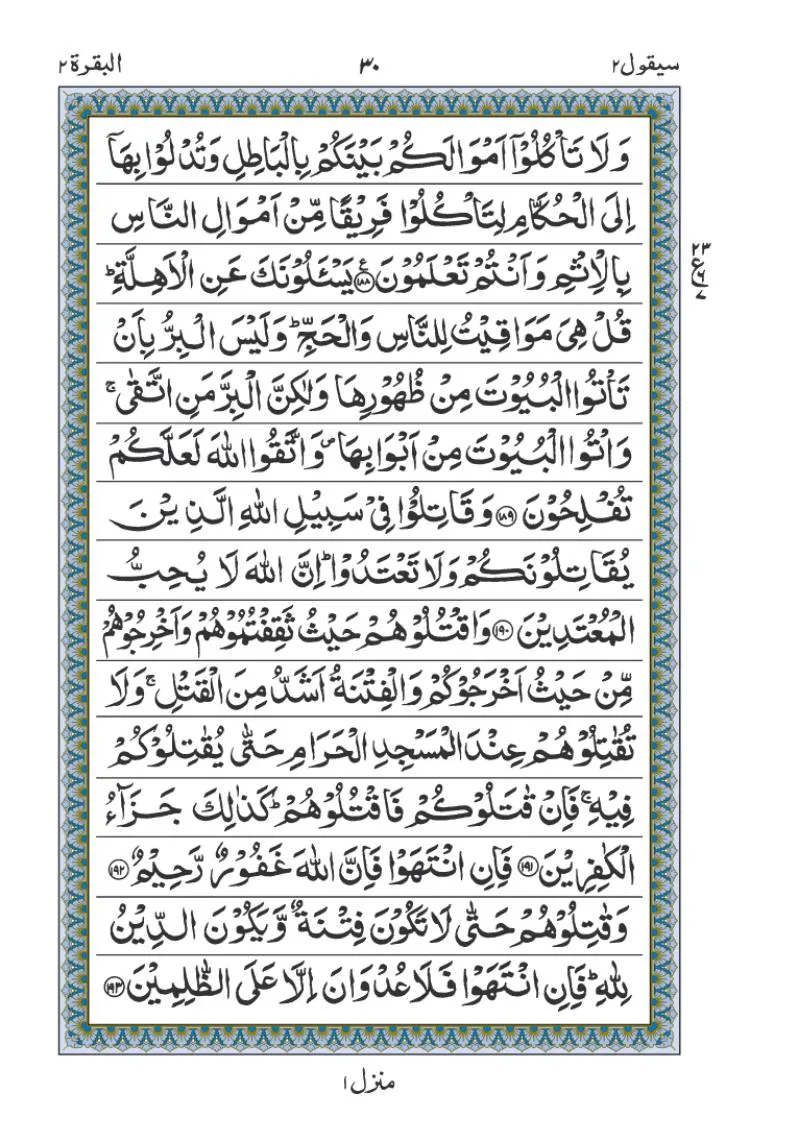 سيقول ٢ ٣٠ البقرة ٢
وَلَا تَاْكُلُوْٓا اَمْوَالَكُمْ بَيْنَكُمْ بِالْبَاطِلِ وَتُدْلُوْا بِهَآ
اِلَى الْحُكَّامِ لِتَاْكُلُوْا فَرِيْقًا مِّنْ اَمْوَالِ النَّاسِ
بِالْاِثْمِ وَاَنْتُمْ تَعْلَمُوْنَ ع ١٨٨ يَسْـَٔلُوْنَكَ عَنِ الْاَهِلَّةِ ؕ
قُلْ هِيَ مَوَاقِيْتُ لِلنَّاسِ وَالْحَجِّ ؕ وَلَيْسَ الْبِرُّ بِاَنْ
تَاْتُوا الْبُيُوْتَ مِنْ ظُهُوْرِهَا وَلٰكِنَّ الْبِرَّ مَنِ اتَّقٰى ۚ
وَاْتُوا الْبُيُوْتَ مِنْ اَبْوَابِهَا ۪ وَاتَّقُوا اللّٰهَ لَعَلَّكُمْ
تُفْلِحُوْنَ ١٨٩ وَقَاتِلُوْا فِيْ سَبِيْلِ اللّٰهِ الَّذِيْنَ
يُقَاتِلُوْنَكُمْ وَلَا تَعْتَدُوْا ؕ اِنَّ اللّٰهَ لَا يُحِبُّ
الْمُعْتَدِيْنَ ١٩٠ وَاقْتُلُوْهُمْ حَيْثُ ثَقِفْتُمُوْهُمْ وَاَخْرِجُوْهُمْ
مِّنْ حَيْثُ اَخْرَجُوْكُمْ وَالْفِتْنَةُ اَشَدُّ مِنَ الْقَتْلِ ۚ وَلَا
تُقٰتِلُوْهُمْ عِنْدَ الْمَسْجِدِ الْحَرَامِ حَتّٰى يُقٰتِلُوْكُمْ
فِيْهِ ۚ فَاِنْ قٰتَلُوْكُمْ فَاقْتُلُوْهُمْ ؕ كَذٰلِكَ جَزَآءُ
الْكٰفِرِيْنَ ١٩١ فَاِنِ انْتَهَوْا فَاِنَّ اللّٰهَ غَفُوْرٌ رَّحِيْمٌ ١٩٢
وَقٰتِلُوْهُمْ حَتّٰى لَا تَكُوْنَ فِتْنَةٌ وَّيَكُوْنَ الدِّيْنُ
لِلّٰهِ ؕ فَاِنِ انْتَهَوْا فَلَا عُدْوَانَ اِلَّا عَلَى الظّٰلِمِيْنَ ١٩٣
٢٣
ع ٦
٧
منزل ١